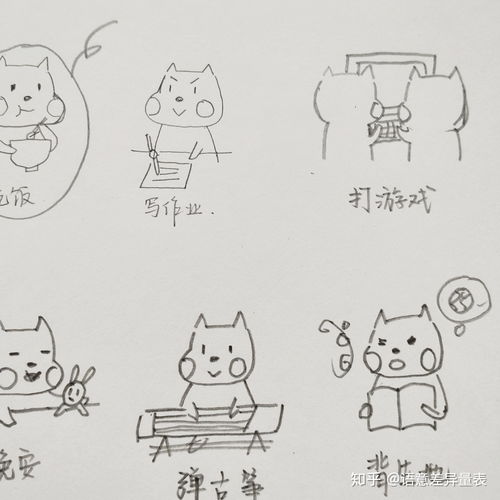 吃饭
写作业.
打游戏
晚安
弹古筝
背地
知乎 @语意差异量表